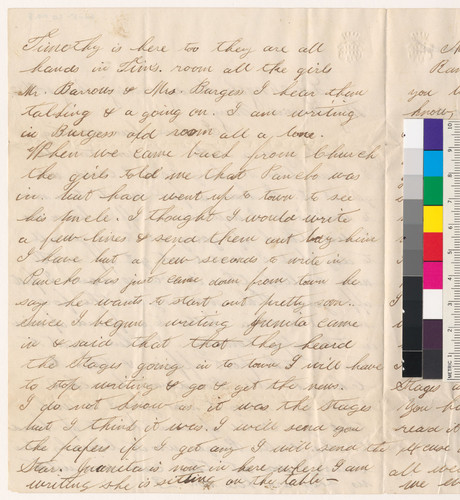 Timothy is here too they are all
hands in Tims. room all the girls
Mr. Barrows & Mrs. Burges I hear them
talking & a going on. I am writing
in Burgess old room all a lone.
When we came back from Church
the girls told me that Pancho was
in. but had went up to town to see
his uncle. I thought I would write
a few lines & send them out by him
I have but a few seconds to write in
Pancho has just came down from town he
says he wants to start out pretty soon.
Since I begun writing Juanita came
in & said that that they heard
the Stages going in to town I will have
to stop writing & go & get the news.
I do not know as it was the Stages
but I think it was. I will send you
the papers if I get any I will send the
Star. Juanita is now in here where I am
writing she is sitting on the table—
you
know
Stages
read it
all